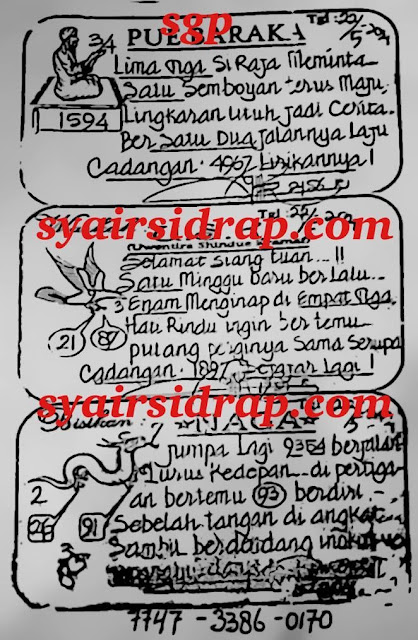 sgp
Tgl : 22/5-2021
PUE BARAKA
3/4
Lima Tiga Si Raja Meminta
Satu Semboyan terus Maju
1594
Lingkaran utuh jadi Cerita
Ber Satu Dua jalannya Laju
Cadangan . 4967 Lirikannya !
syairsidrap.com
Selamat siang tuan ... !!
Satu Minggu baru ber Lalu..
3 Enam Menginap di Empat Tiga.
21 87
Hati Rindu ingin bertemu
pulang perginya Sama Serupa
Cadangan . 1827 Lagi !
syairsidrap.com
Bisikan
NAGA
jumpa Lagi 2354 berjalan
Lurus Kedepan .. di pertiga-
2
an bertemu 93 berdiri
26 91
Sebelah tangan di angkat
Sambil berdendang
7747 - 3386 - 0170